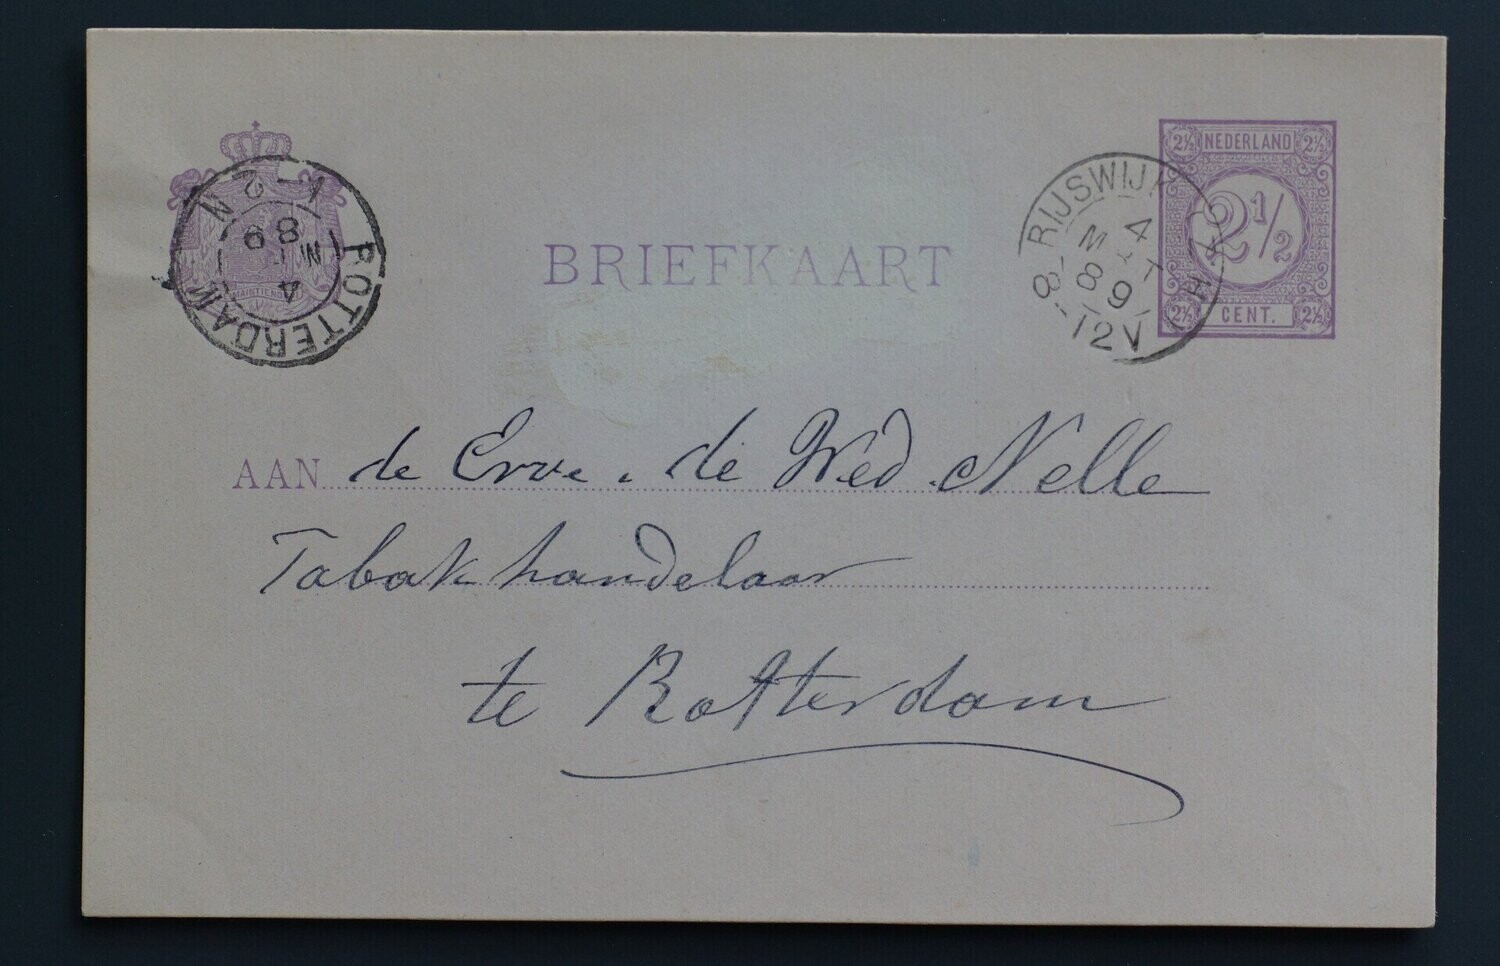 NEDERLAND
2½ 2½
2½
2½ CENT. 2½
RIJSWIJK Z:H
4
MRT
89
8-12V
ROTTERDAM
4
MRT
89
1-2N
BRIEFKAART
AAN de Erve. de Wed Nelle
Tabakhandelaar
te Rotterdam